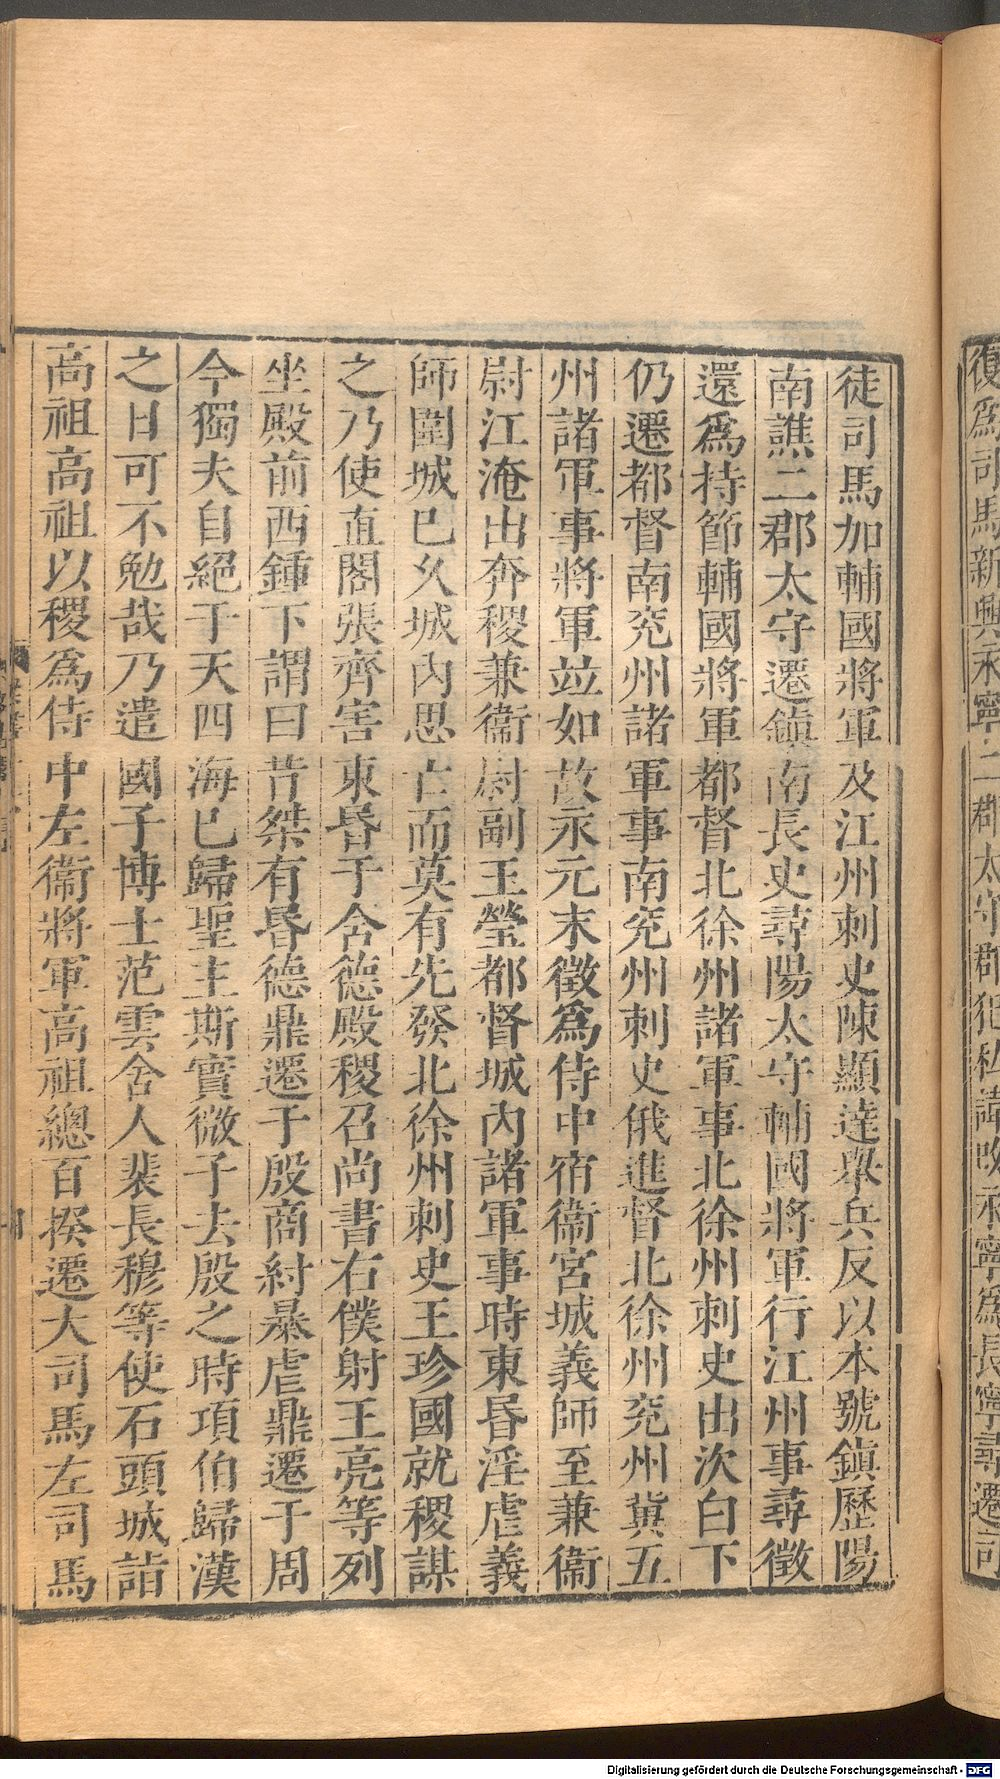 復爲司馬新興永寧二郡太守郡犯私諱改永寧爲長寧尋遷司
徒司馬加輔國將軍及江州刺史陳顯達舉兵反以本號鎮歷陽
南譙二郡太守遷鎮南長史尋陽太守輔國將軍行江州事尋徵
還爲持節輔國將軍都督北徐州諸軍事北徐州刺史出次白下
仍遷都督南兗州諸軍事南兗州刺史俄進督北徐州兗州冀五
州諸軍事將軍竝如故永元末徵爲侍中宿衞宮城義師至兼衞
尉江淹出奔稷兼衞尉副王瑩都督城內諸軍事時東昬淫虐義
師圍城已久城內思亡而莫有先發北徐州刺史王珍國就稷謀
之乃使直閣張齊害東昬于含德殿稷召尚書右僕射王亮等列
坐殿前西鍾下謂曰昔桀有昬德鼎遷于殷商紂暴虐鼎遷于周
今獨夫自絕于天四海已歸聖主斯實微子去殷之時項伯歸漢
之日可不勉哉乃遣國子博士范雲舍人裴長穆等使石頭城詣
高祖高祖以稷爲侍中左衞將軍高祖總百揆遷大司馬左司馬
Digitalisierung gefördert durch die Deutsche Forschungsgemeinschaft - DFG